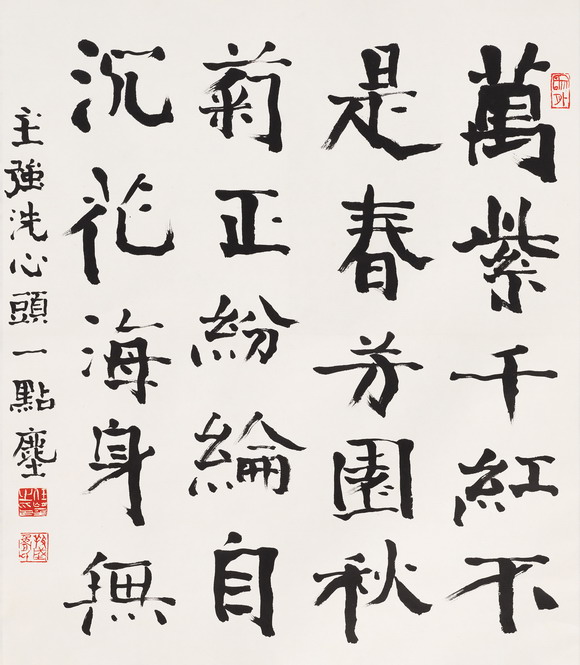 萬紫千紅不
是春芳園秋
菊正紛綸自
沉花海身無
主強洗心頭一點塵